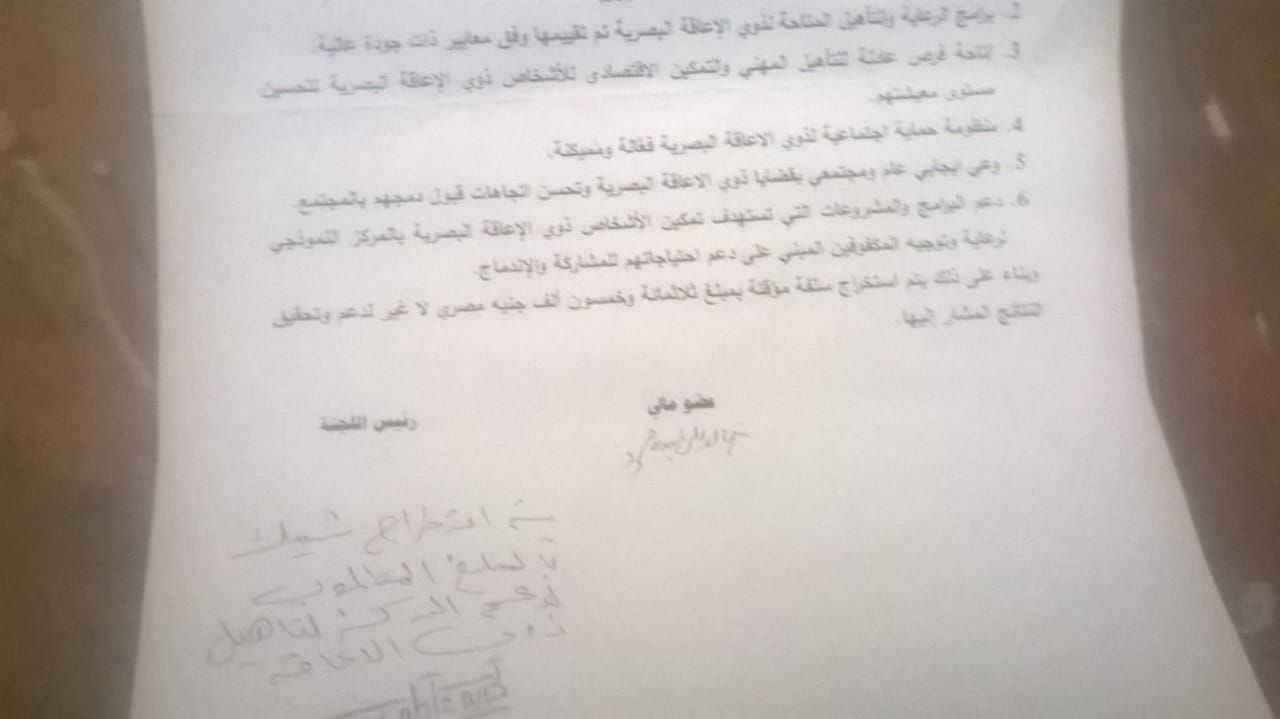 2. برامج الرعاية والتأهيل المتاحة لذوي الاعاقة البصرية تم تقييمها وفق معايير ذات جودة عالية.
3. إتاحة فرص عادلة للتأهيل المهني والتمكين الاقتصادى للأشخاص ذوي الإعاقة البصرية لتحسين
مستوى معيشتهم.
4. منظومة حماية اجتماعية لذوي الاعاقة البصرية فعالة ومميكنة.
5. وعي ايجابي عام ومجتمعي بقضايا ذوي الاعاقة البصرية وتحسن اتجاهات قبول دمجهم بالمجتمع.
6. دعم البرامج والمشروعات التي تستهدف تمكين الأشخاص ذوي الإعاقة البصرية بالمركز النموذجي
لرعاية وتوجيه المكفوفين المبني على دعم احتياجاتهم للمشاركة والإندماج.
وبناء على ذلك يتم استخراج سلفة مؤقتة بمبلغ ثلاثمائة وخمسون ألف جنيه مصري لا غير لدعم وتحقيق
النتائج المشار إليها.
عضو مالي
رئيس اللجنة
يتم استخراج شيك
بالمبلغ المطلوب
لدعم المركز لتاهيل
ذوى الاعاقة